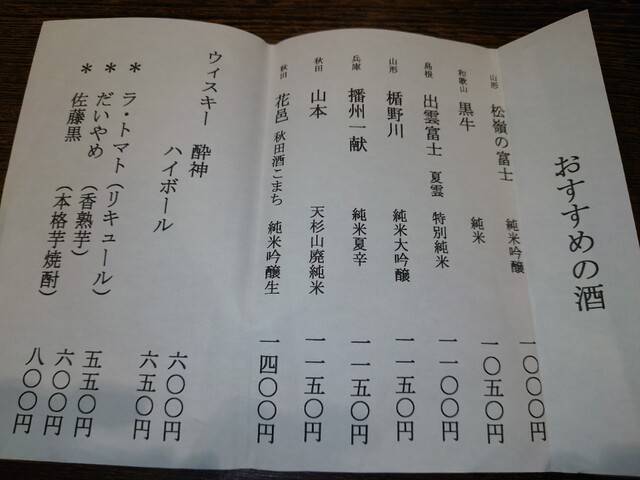 おすすめの酒
山形 松嶺の富士 純米吟醸 一〇〇〇円
和歌山 黒牛 純米 一〇五〇円
島根 出雲富士 夏雲 特別純米 一一〇〇円
山形 楯野川 純米大吟醸 一一五〇円
兵庫 播州一献 純米夏辛 一一五〇円
秋田 山本 天杉山廃純米 一一五〇円
秋田 花邑 秋田酒こまち 純米吟醸生 一四〇〇円
ウィスキー 酔神 六〇〇円
ハイボール 六五〇円
* ラ・トマト(リキュール) 五五〇円
* だいやめ (香熟芋) 六〇〇円
* 佐藤黒 (本格芋焼酎) 八〇〇円